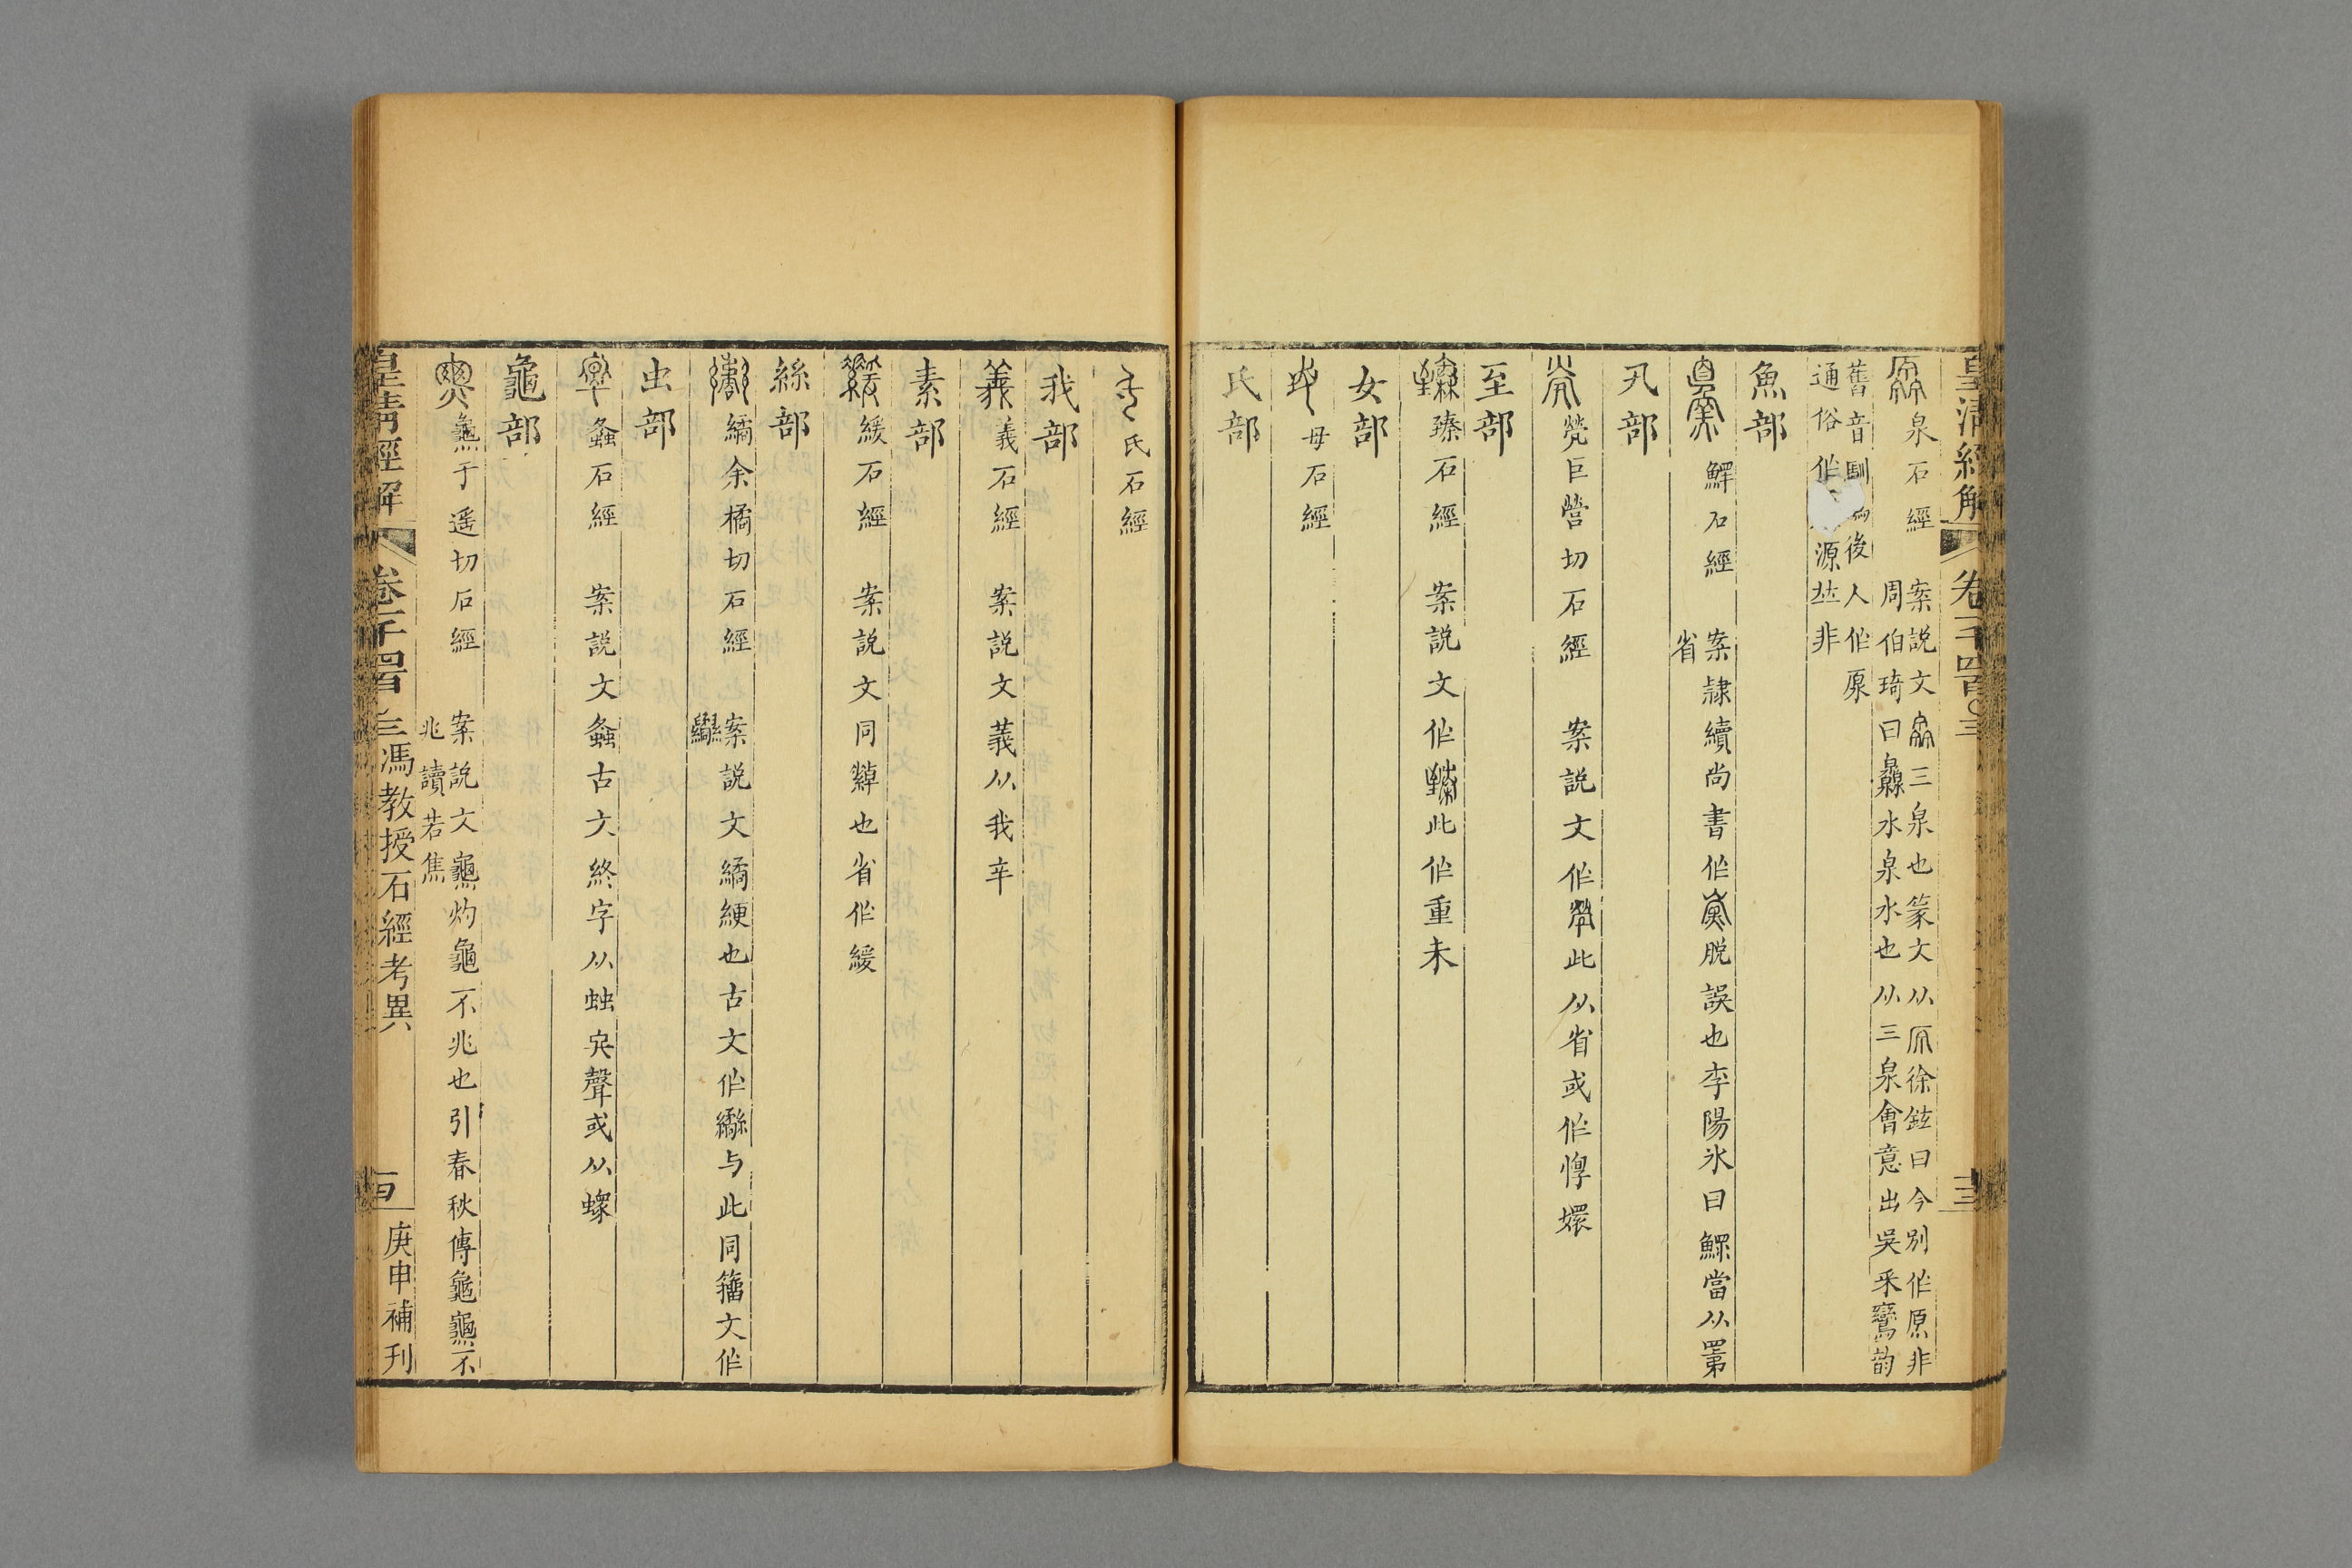 皇清經解
卷一千四百〇三
十三
泉石經
案說文灥三泉也篆文从厵徐鉉曰今別作原非
周伯琦曰灥水泉水也从三泉會意出吳采鸞韵
舊音馴後人作厡
通俗作源𠀤非
魚部
鰥石經
案隸續尚書作脫誤也李陽冰曰鰥當从
省
卂部
煢巨營切石經 案說文作此从省或作惸嬛
至部
臻石經 案說文作此作重未
女部
毋石經
氏部
氏石經
我部
義石經 案說文義从我𢦏
素部
緩石經 案說文同繛也省作緩
絲部
繘余橘切石經
案說文繘綆也古文作與此同籒文作
虫部
螽石經 案說文螽古文終字从䖵夂聲或从螺
龜部
𪚰于遥切石經
案說文𪚰灼龜不兆也引春秋傳龜𪚰不
兆讀若焦
皇清經解
卷一千四百三馮教授石經考異
庚申補刊